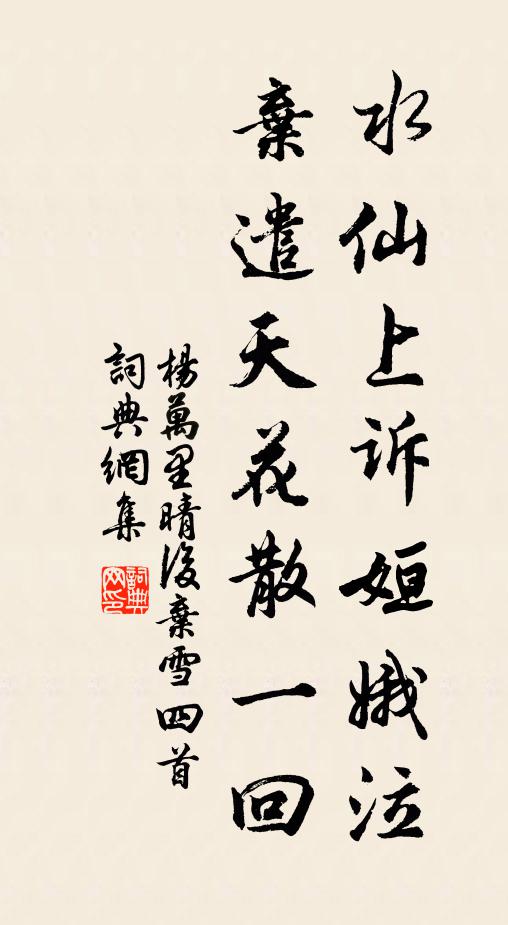 水仙上诉姮娥泣
棄遣天花散一回
楊萬里晴後棄雪四首
詞典網集
詞典網印